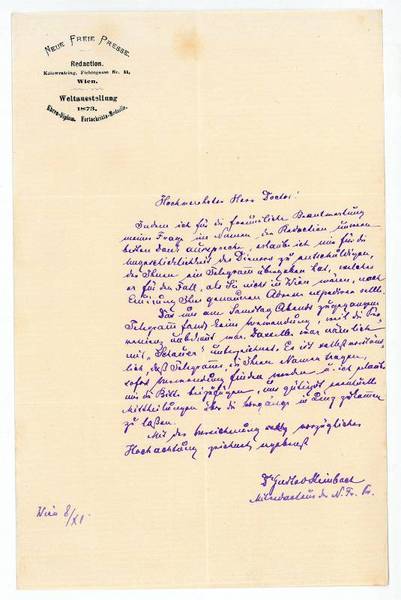 NEUE FREIE PRESSE.
Redaction.
Kolowratring, Fichtegasse Nr. 11,
Wien.
Weltausstellung
1873.
Ehren-Diplom. Fortschritts-Medaille.
Hochverehrter Herr Doctor!
Indem ich für die freundliche Beantwortung
meiner Frage im Namen der Redaction unseren
besten Dank ausspreche, erlaube ich mir für die
Ungeschicklichkeit des Dieners zu entschuldigen,
der Ihnen ein Telegram übergeben hat, welches
er für den Fall, als Sie nicht in Wien wären, nach
Ihrer genauen Adresse expediren sollte.
Das uns am Samstag Abends zugegangene
Telegram fand keine Verwendung, weil die
war. Dasselbe war nämlich
mit "Schauer" unterzeichnet. Es ist selbstverständ-
lich, daß Telegrame, die Ihren Namen tragen,
sofort Verwendung finden werden u. ich erlaube
mir die Bitte beizufügen, uns gütigst
Mittheilungen über die Vorgänge in Linz zukommen
zu laßen.
Mit der Versicherung vorzüglicher
Hochachtung zeichnet ergebenst
Dr Gustav Steinbach
Mitredacteur der N. Fr. Pr.
Wien 8/XI.